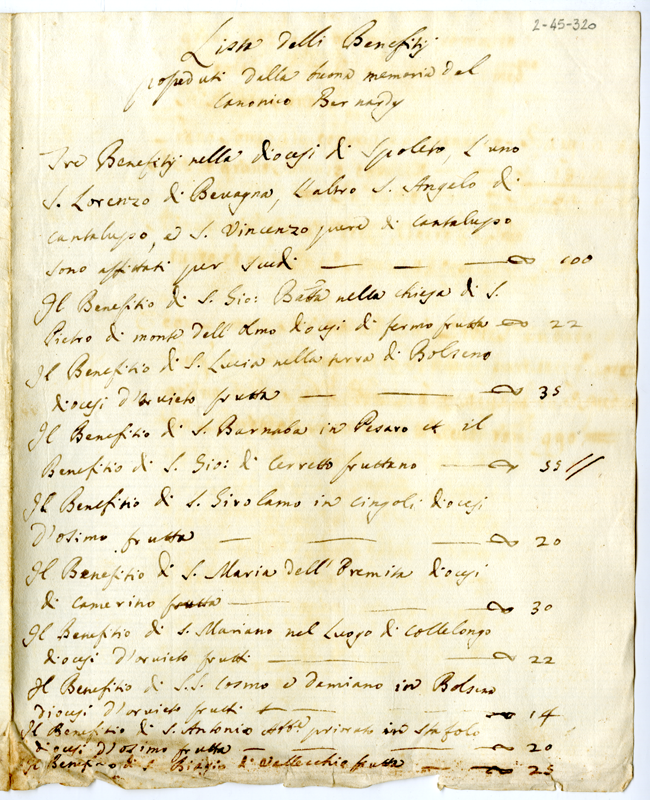 2-45-320
Lista delli Benefitij
posseduti dalla buona memoria del
Canonico Bernardij
Tre Benefitij nella diocesi di Spoleto, l'uno
S. Lorenzo di Bevagna, l'altro S. Angelo di
Cantalupo, e S. Vincenzo pure di Cantalupo
sono affittati per scudi — — 100
Il Benefitio di S. Gio: Batta nella chiesa di S.
Pietro di monte dell'olmo diocesi di fermo frutta 22
Il Benefitio di S. Lucia nella terra di Bolseno
diocesi d'orvieto frutta — — 35
Il Benefitio di S. Barnaba in Pesaro et il
Benefitio di S. Gio: di Cerretto fruttano — 55 //
Il Benefitio di S. Girolamo in Cingoli diocesi
d'osimo frutta — — 20
Il Benefitio di S. Maria dell' Eremita diocesi
di Camerino frutta — — 30
Il Benefitio di S. Mariano nel Luogo di Collelongo
diocesi d'orvieto frutti — — 22
Il Benefitio di S.S. Cosmo e Damiano in Bolseno
diocesi d'orvieto frutti — — 14
Il Benefitio di S. Antonio Abb.e in Stafolo
diocesi d'osimo frutta — — 20
Il Benefitio di S. Biagio di Vallecchio frutta — 25